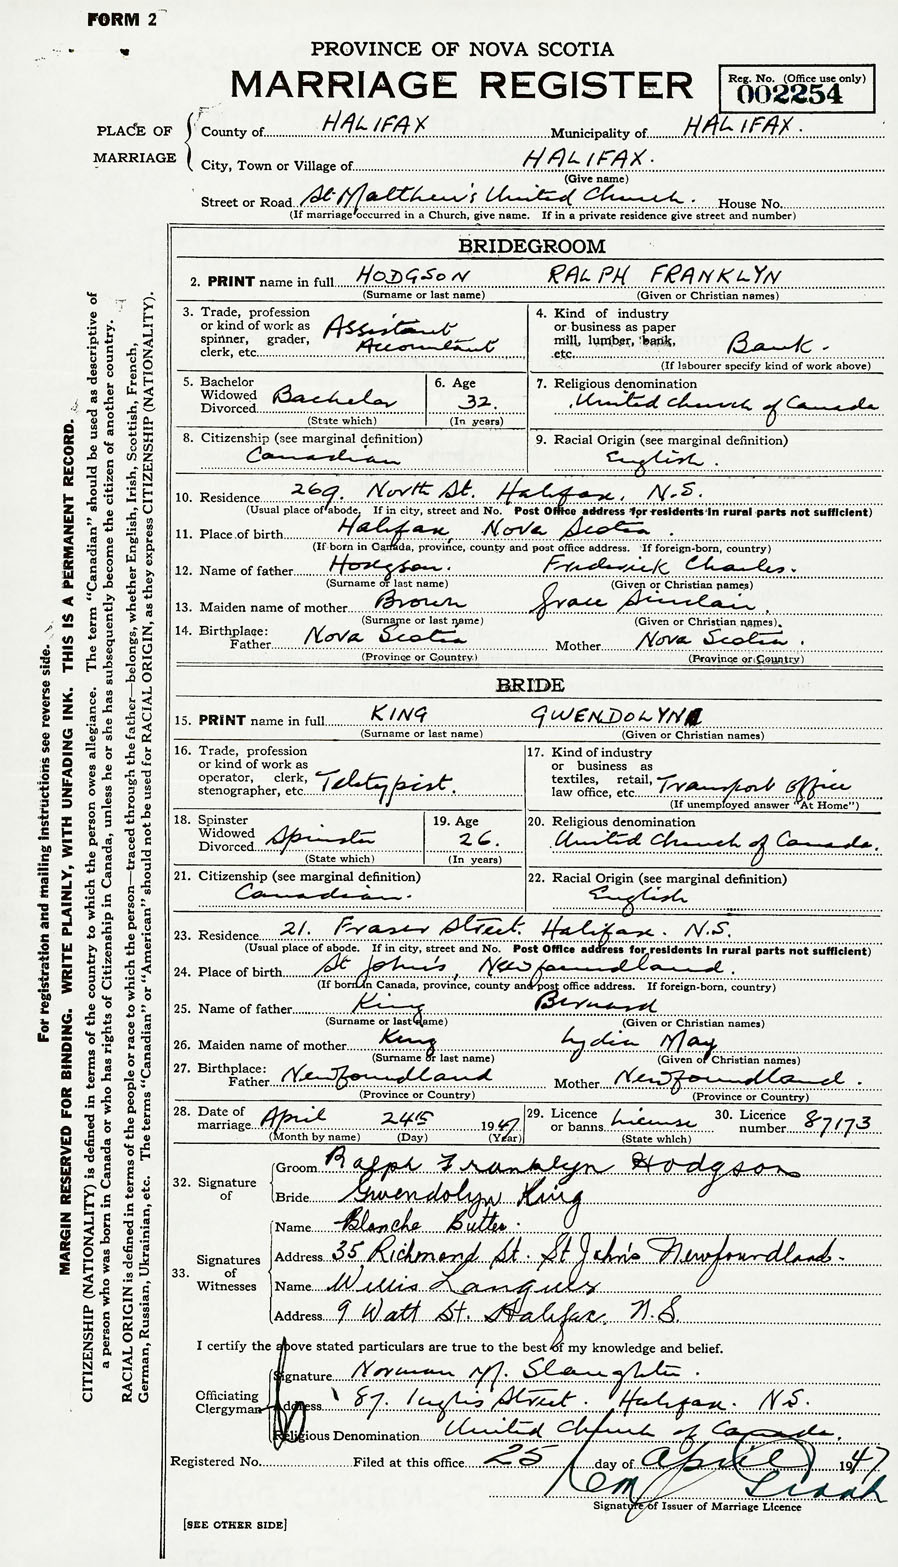 FORM 2
PROVINCE OF NOVA SCOTIA
MARRIAGE REGISTER
Reg. No. (Office use only)
002254
PLACE OF MARRIAGE
County of HALIFAX Municipality of HALIFAX.
City, Town or Village of HALIFAX.
(Give name)
Street or Road St. Matthew's United Church. House No.
(If marriage occurred in a Church, give name. If in a private residence give street and number)
BRIDEGROOM
2. PRINT name in full HODGSON RALPH FRANKLYN
(Surname or last name) (Given or Christian names)
3. Trade, profession or kind of work as spinner, grader, clerk, etc. Assistant Accountant
4. Kind of industry or business as paper mill, lumber, bank, etc. Bank.
(If labourer specify kind of work above)
5. Bachelor Widowed Divorced Bachelor
(State which)
6. Age 32.
(In years)
7. Religious denomination United Church of Canada
8. Citizenship (see marginal definition) Canadian
9. Racial Origin (see marginal definition) English.
10. Residence 269. North St. Halifax, N.S.
(Usual place of abode, If in city, street and No. Post Office address for residents in rural parts not sufficient)
11. Place of birth Halifax, Nova Scotia
(If born in Canada, province, county and post office address. If foreign-born, country)
12. Name of father Hodgson. Frederick Charles.
(Surname or last name) (Given or Christian names)
13. Maiden name of mother Brown Grace Sinclair.
(Surname or last name) (Given or Christian names).
14. Birthplace: Father Nova Scotia Mother Nova Scotia.
(Province or Country) (Province or Country)
BRIDE
15. PRINT name in full KING GWENDOLYN
(Surname or last name) (Given or Christian names)
16. Trade, profession or kind of work as operator, clerk, stenographer, etc. Teletypist.
17. Kind of industry or business as textiles, retail, law office, etc. Transport Office
(If unemployed answer "At Home")
18. Spinster Widowed Divorced Spinster
(State which)
19. Age 26.
(In years)
20. Religious denomination United Church of Canada.
21. Citizenship (see marginal definition) Canadian.
22. Racial Origin (see marginal definition) English
23. Residence 21. Fraser Street. Halifax. N.S.
(Usual place of abode. If in city, street and No. Post Office address for residents in rural parts not sufficient)
24. Place of birth St John's, Newfoundland.
(If born in Canada, province, county and post office address. If foreign-born, country)
25. Name of father King Bernard
(Surname or last name) (Given or Christian names)
26. Maiden name of mother King Lydia May
(Surname or last name) (Given or Christian names)
27. Birthplace: Father Newfoundland Mother Newfoundland.
(Province or Country) (Province or Country)
28. Date of marriage April 24th 1947
(Month by name) (Day) (Year)
29. Licence or banns License
(State which)
30. Licence number 87173
32. Signature of
Groom Ralph Franklyn Hodgson
Bride Gwendolyn King
33. Signatures of Witnesses
Name Blanche Butler.
Address 35 Richmond St. St John's Newfoundland.
Name Willis
Address 9 Watt St. Halifax. N.S.
I certify the above stated particulars are true to the best of my knowledge and belief.
Officiating Clergyman
Signature Norman M. Slaughter.
Address 87. Inglis Street. Halifax. N.S.
Religious Denomination United Church of Canada.
Registered No. Filed at this office 25 day of April 1947
Signature of Issuer of Marriage Licence
[SEE OTHER SIDE]
For registration and mailing instructions see reverse side.
MARGIN RESERVED FOR BINDING. WRITE PLAINLY, WITH UNFADING INK. THIS IS A PERMANENT RECORD.
CITIZENSHIP (NATIONALITY) is defined in terms of the country to which the person owes allegiance. The term "Canadian" should be used as descriptive of
a person who was born in Canada or who has rights of Citizenship in Canada, unless he or she has subsequently become the citizen of another country.
RACIAL ORIGIN is defined in terms of the people or race to which the person—traced through the father—belongs, whether English, Irish, Scottish, French,
German, Russian, Ukrainian, etc. The terms "Canadian" or "American" should not be used for RACIAL ORIGIN, as they express CITIZENSHIP (NATIONALITY).